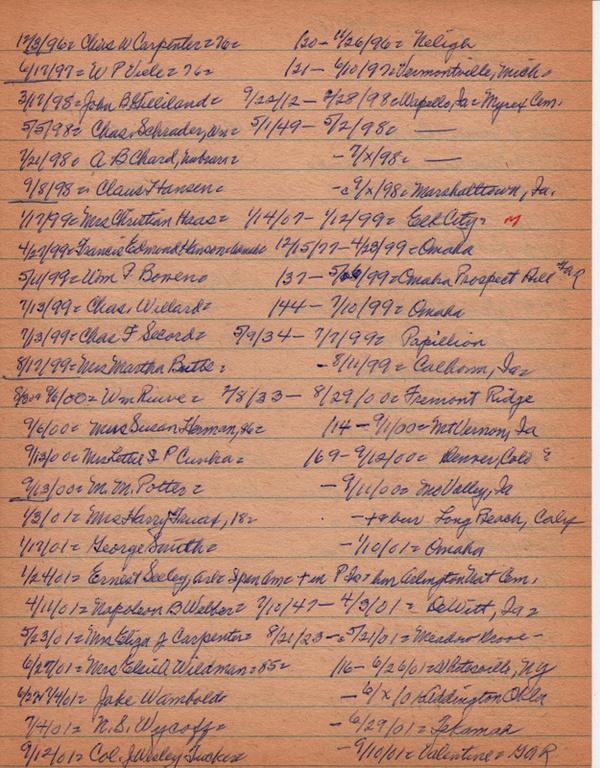 12/3/96= Chas W Carpenter=76= /20- 11/26/96= Neligh
6/17/97= W P Viele=76= /21- 6/10/97=Vermontville, Mich=
3/17/98=John B Gilliland= 9/22/12- 2/28/98=Wapello, Ia= Myrex Cem.
5/5/98= Chas. Schrader, 5/1/49- 5/2/98= —
7/21/98= A B Chard, Auburn= - 7/x/98= —
9/8/98= Claus Hansen= -=9/x/98= Marshalltown, Ia.
1/17/99=Mrs Christian Haas= 1/14/07- 1/12/99= Elk City= M
4/27/99=Francis Edmond Hanson=Omaha= 12/15/77-4/23/99=Omaha
5/11/99=Wm F Bowen= /37- /99=Omaha Prospect Hill GAR
7/13/99= Chas. Willard= /44- 7/10/99= Omaha
7/13/99=Chas F Secord= 5/9/34- 7/7/99= Papillion
8/17/99=Mrs Martha Butts= -8/11/99= Calhoun, Ia=
9/6/00= Wm Rieve= 7/8/33- 8/29/00= Fremont Ridge
9/6/00= Mrs Susan Herman, 86= /14- 9/1/00= Mt Vernon, Ia
9/13/00=Mrs Lettie I P Cuvha= /69-9/12/00= Denver, Colo
9/13/00= M. M. Potter= -9/11/00= Mo Valley, Ia
1/3/01= Mrs Harry 18= -+&bur Long Beach, Calif
1/17/01= George Smith= -1/10/01= Omaha
1/24/01= Ernest Seeley, Span Am= +in P Is+bur Arlington Nat Cem.
4/11/01= Napoleon B Webber= 7/12/47- 4/3/01= DeWitt, Ia=
5/23/01=Mrs Eliza J Carpenter= 8/21/23-=5/21/01= Meadow Grove-
6/27/01=Mrs Elsie A Wildman=85= /16-6/26/01=Whitesville, NY
7/4/01= Jake Wambold= -6/x/0 Kiddington Okla
7/4/01= N. S. Wycoff= -6/29/01= Tekamah
9/12/01= Col. J Wesley Tucker= -9/10/01= Valentine= GAR